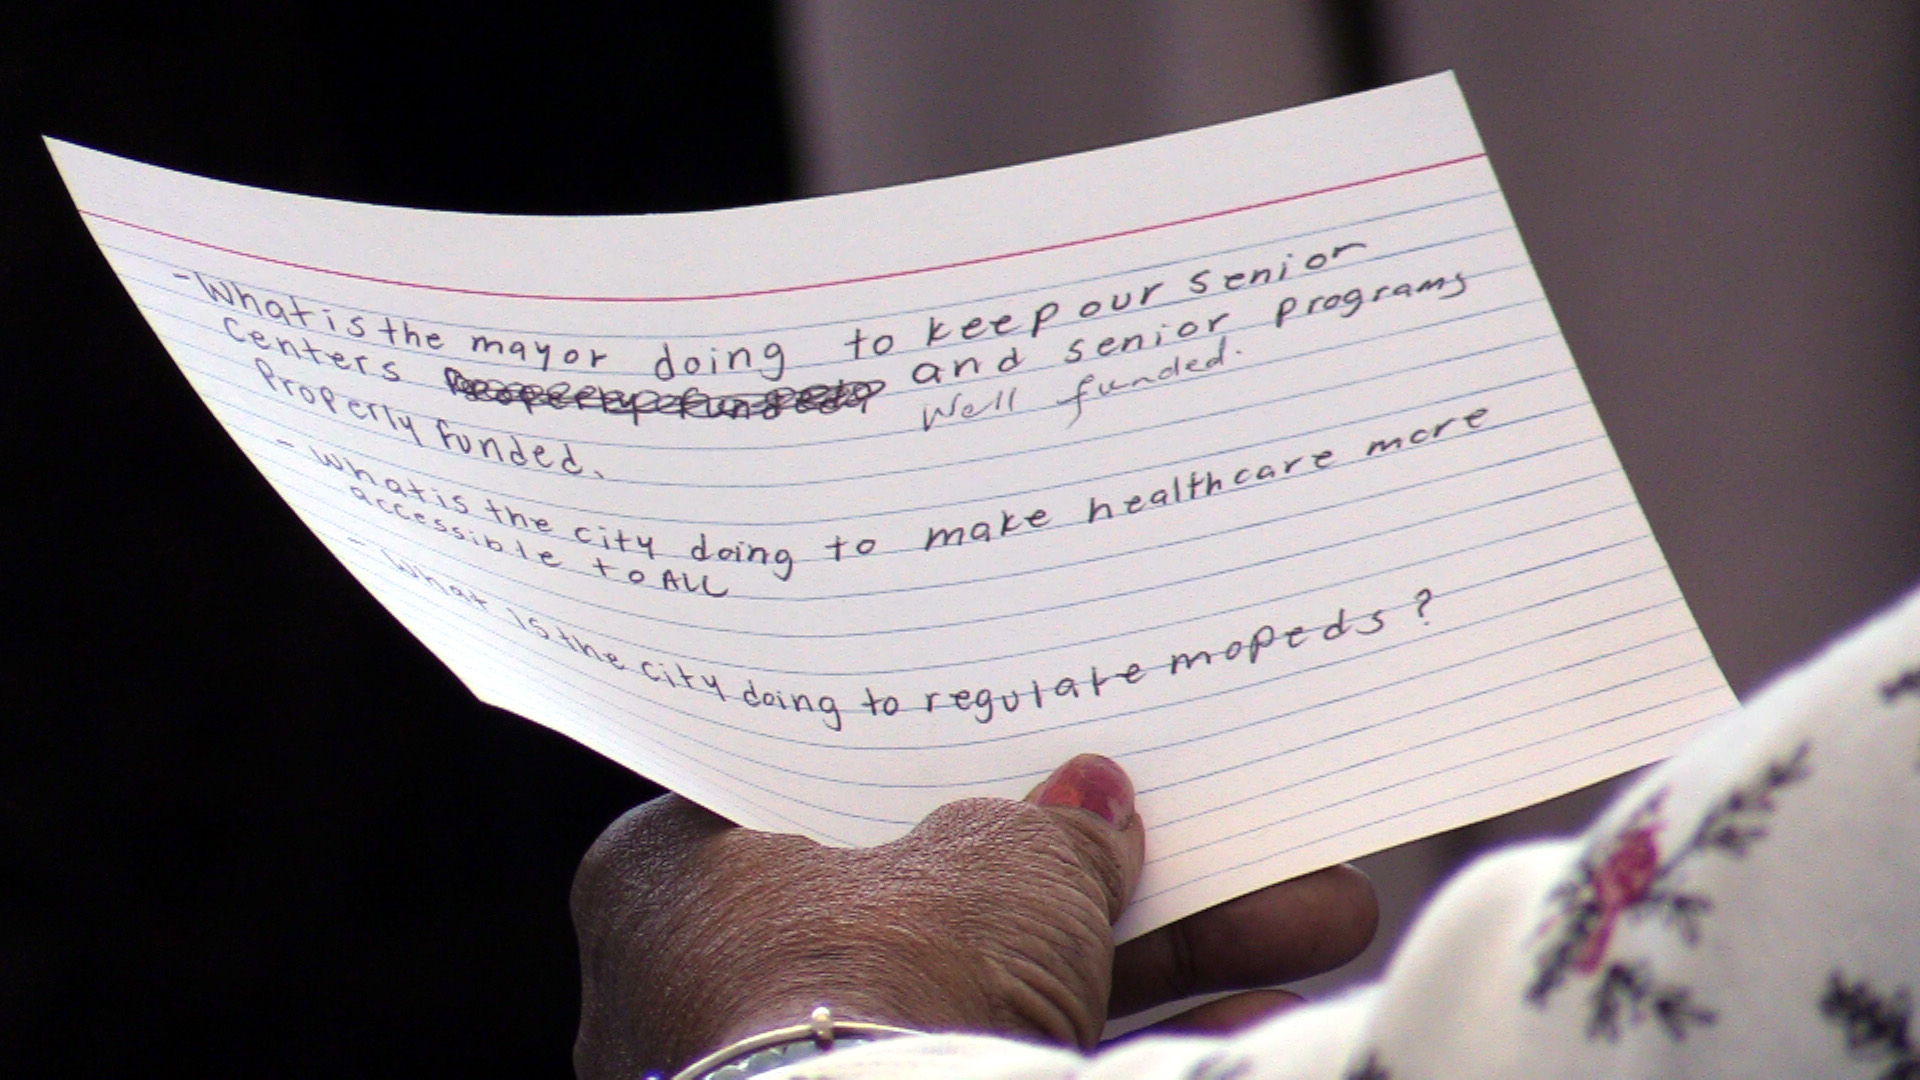 - What is the mayor doing to keep our senior
centers and senior programs
Properly funded. Well funded.
- What is the city doing to make healthcare more
accessible to ALL
- What is the city doing to regulate mopeds?